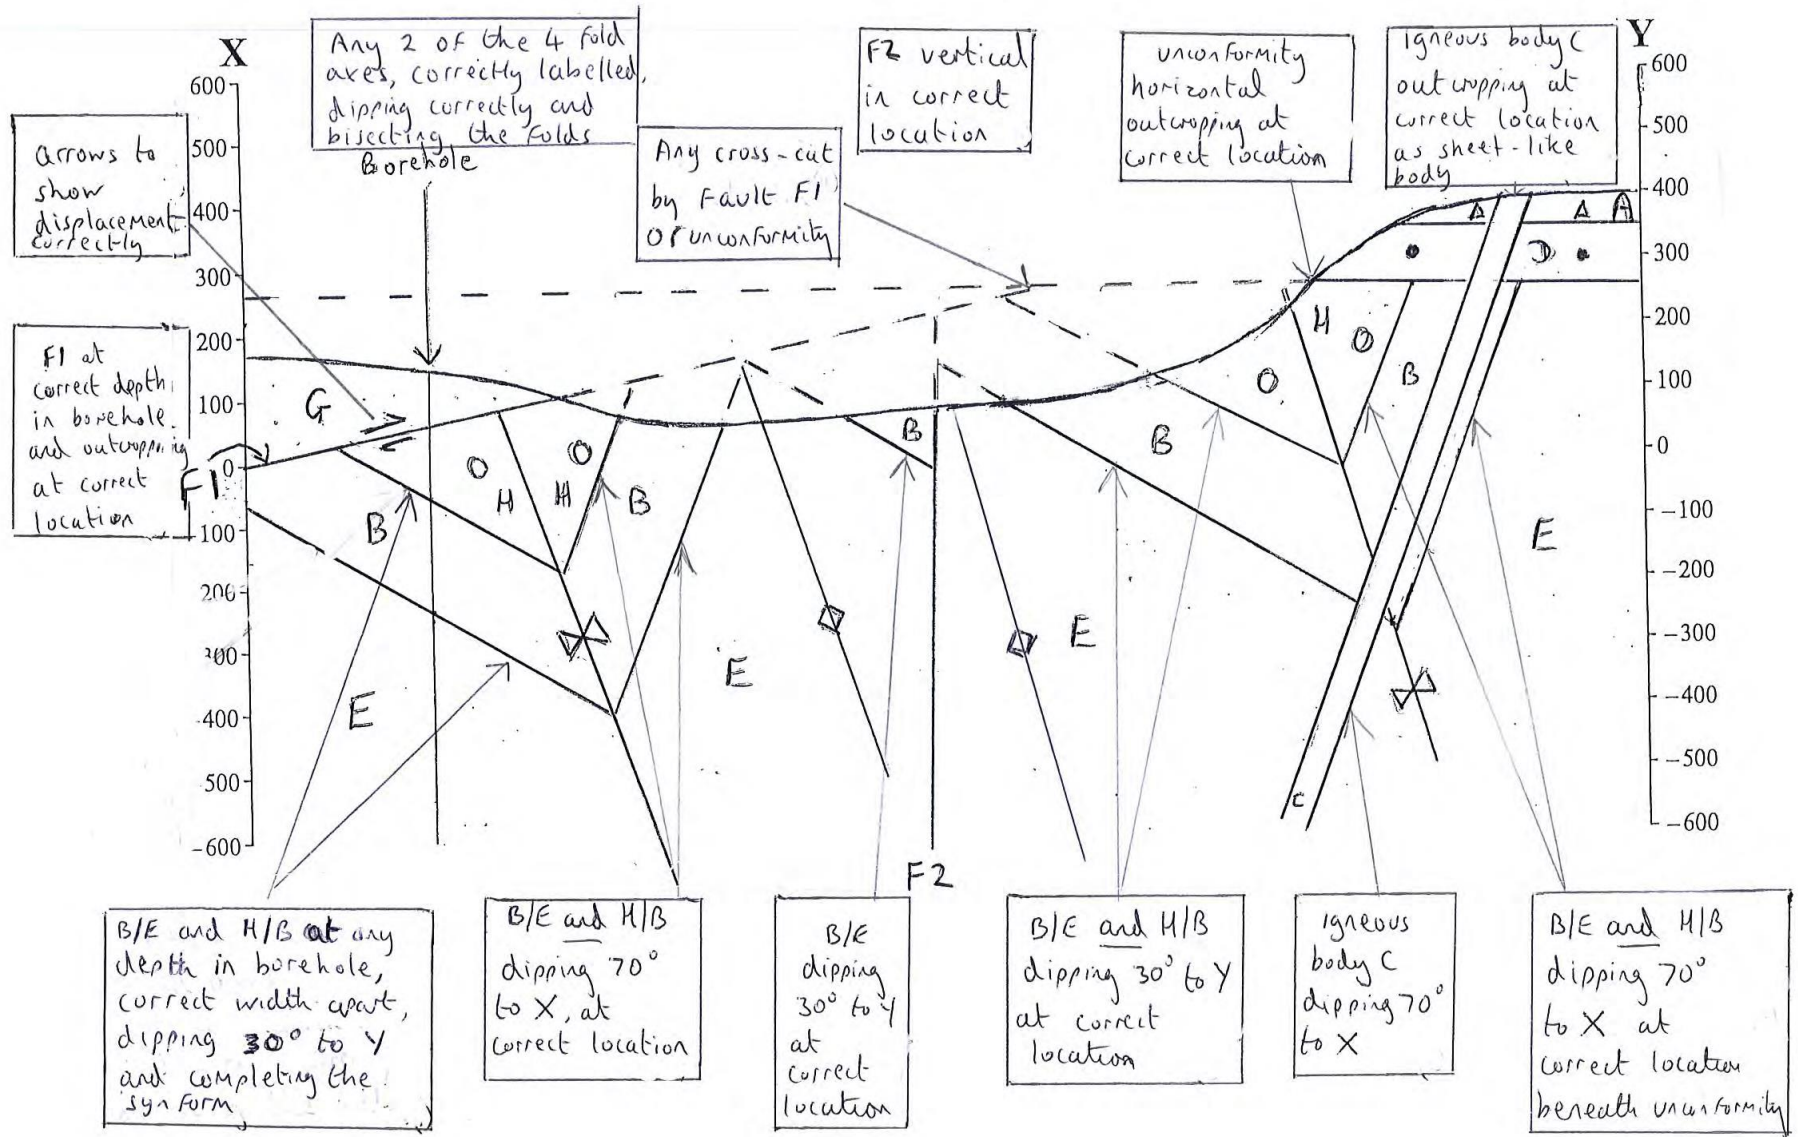 X
Y
Any 2 of the 4 fold
axes, correctly labelled,
dipping correctly and
bisecting the folds
Borehole
F2 vertical
in correct
location
unconformity
horizontal
outcropping at
correct location
igneous body C
outcropping at
correct location
as sheet-like
body
arrows to
show
displacement
correctly
Any cross-cut
by Fault F1
or unconformity
F1 at
correct depth
in borehole
and outcropping
at correct
location
F1
600
500
400
300
200
100
0
100
200
300
400
500
-600
600
500
400
300
200
100
0
-100
-200
-300
-400
-500
-600
G
B
O
H
O
H
B
E
E
B
E
B
O
H
O
B
A
A
A
D
E
C
F2
B/E and H/B at any
depth in borehole,
correct width apart,
dipping 30° to Y
and completing the
synform
B/E and H/B
dipping 70°
to X, at
correct location
B/E
dipping
30° to Y
at
correct
location
B/E and H/B
dipping 30° to Y
at correct
location
igneous
body C
dipping 70°
to X
B/E and H/B
dipping 70°
to X at
correct location
beneath unconformity